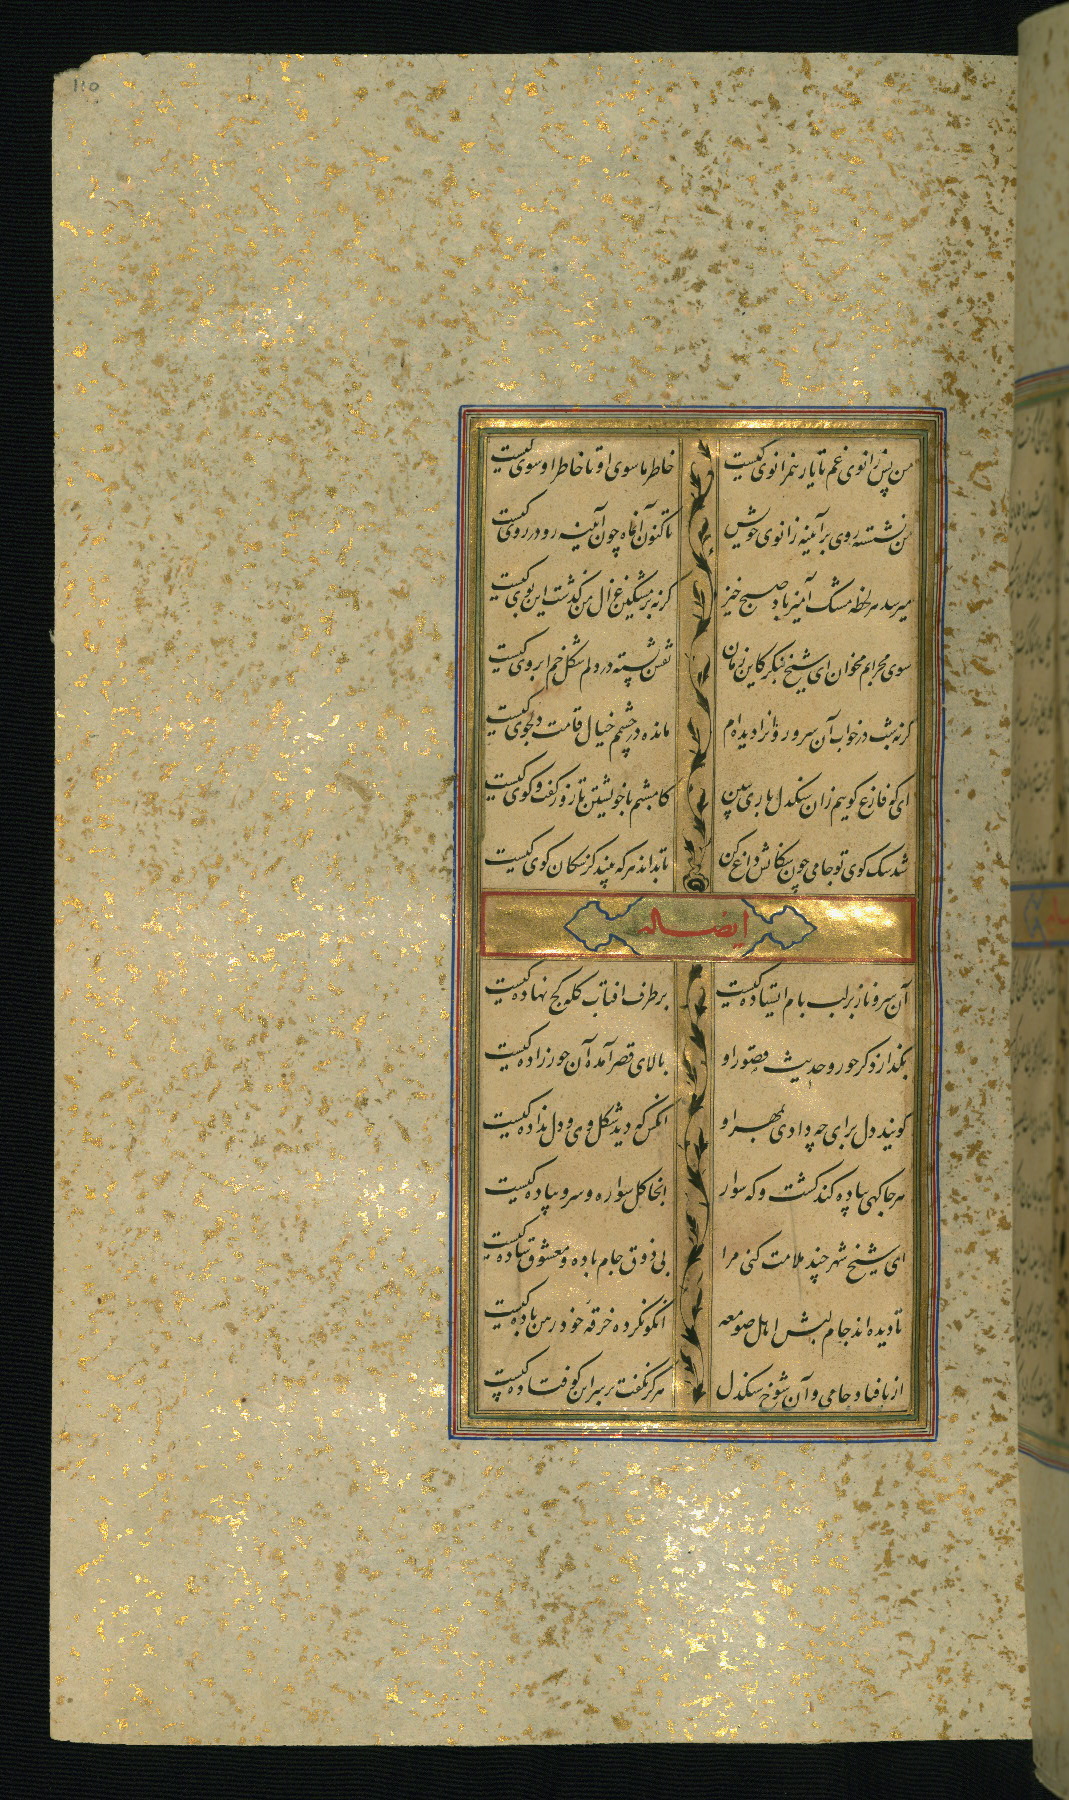 110
من پس زانوی غم تا یار همزانوی کیست
خاطر ما سوی او تا خاطر او سوی کیست
من نشسته روی بر آینه زانوی خویش
تا کنون آن ماه چون آینه رو در روی کیست
میرسد هر لحظه مشک آمیز باد صبح خیز
گر نه بر مشکین غزال من گذشت این بوی کیست
سوی محرابم مخوان ای شیخ بنگر کاین زمان
نقش بسته در دلم شکل خم ابروی کیست
گر نه شب در خواب آن سرو روانرا دیده‌ام
مانده در چشمم خیال قامت دلجوی کیست
ای که فارغ گوییم زان سنگدل باری ببین
کامشبم با خویشتن تا روز گفت و گوی کیست
شد سگ کوی تو جامی چون سگانش داغ کن
تا بداند هر که بیند کز سگان کوی کیست
ایضا له
آن سرو ناز بر لب بام ایستاده کیست
بر طرف افتاب کله کج نهاده کیست
بگذار ذکر حور و حدیث قصور او
بالای قصر آمده آن حورزاده کیست
گویند دل برای چه دادی بمهر او
انکس که دید شکل وی و دل نداده کیست
هر جا که پی سپاده کند گشت و که سوار
انجا که گل سواره و سرو پیاده کیست
ای شیخ شهر چند ملامت کنی مرا
بی ذوق جام باده و معشوق ساده کیست
تا دیده‌اند جام لبش اهل صومعه
انکو نکرده خرقه خود رهن باده کیست
از پا فتاد جامی و آن شوخ سنگدل
هرگز نگفت بر سر این کو فتاده کیست